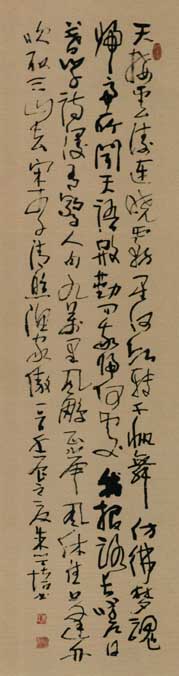 天接雲濤連曉霧星河欲轉千帆舞仿佛夢魂
歸帝所聞天語殷勤問我歸何處我報路長嗟日
暮學詩謾有驚人句九萬里風鵬正舉風休住蓬舟
吹取三山去宋李清照漁家傲之夏朱書